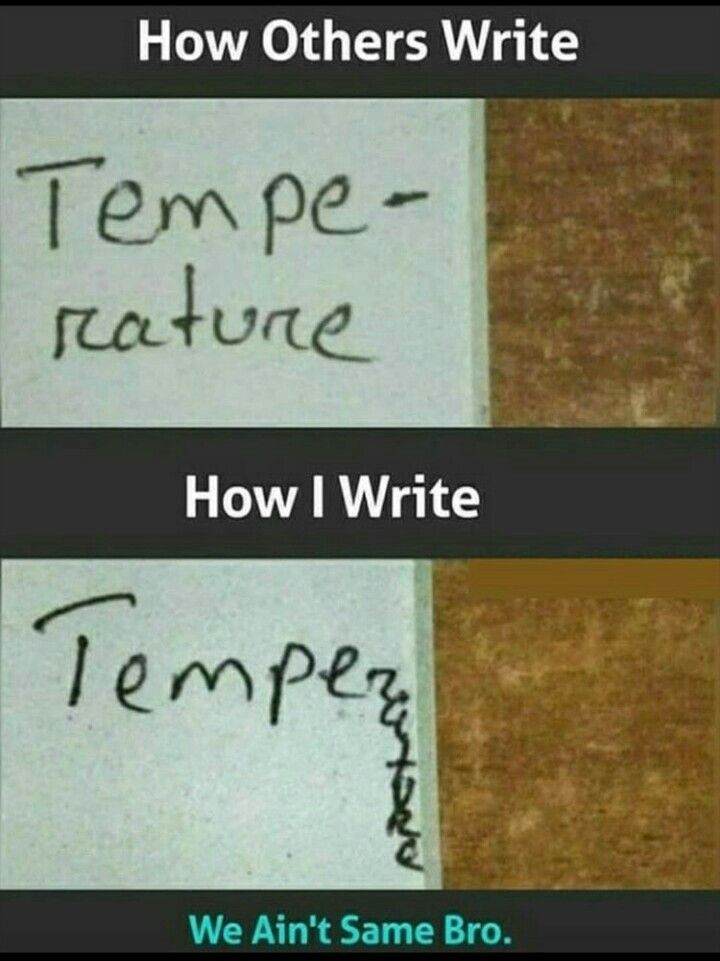 How Others Write
Tempe-
rature
How I Write
Temperature
We Ain't Same Bro.